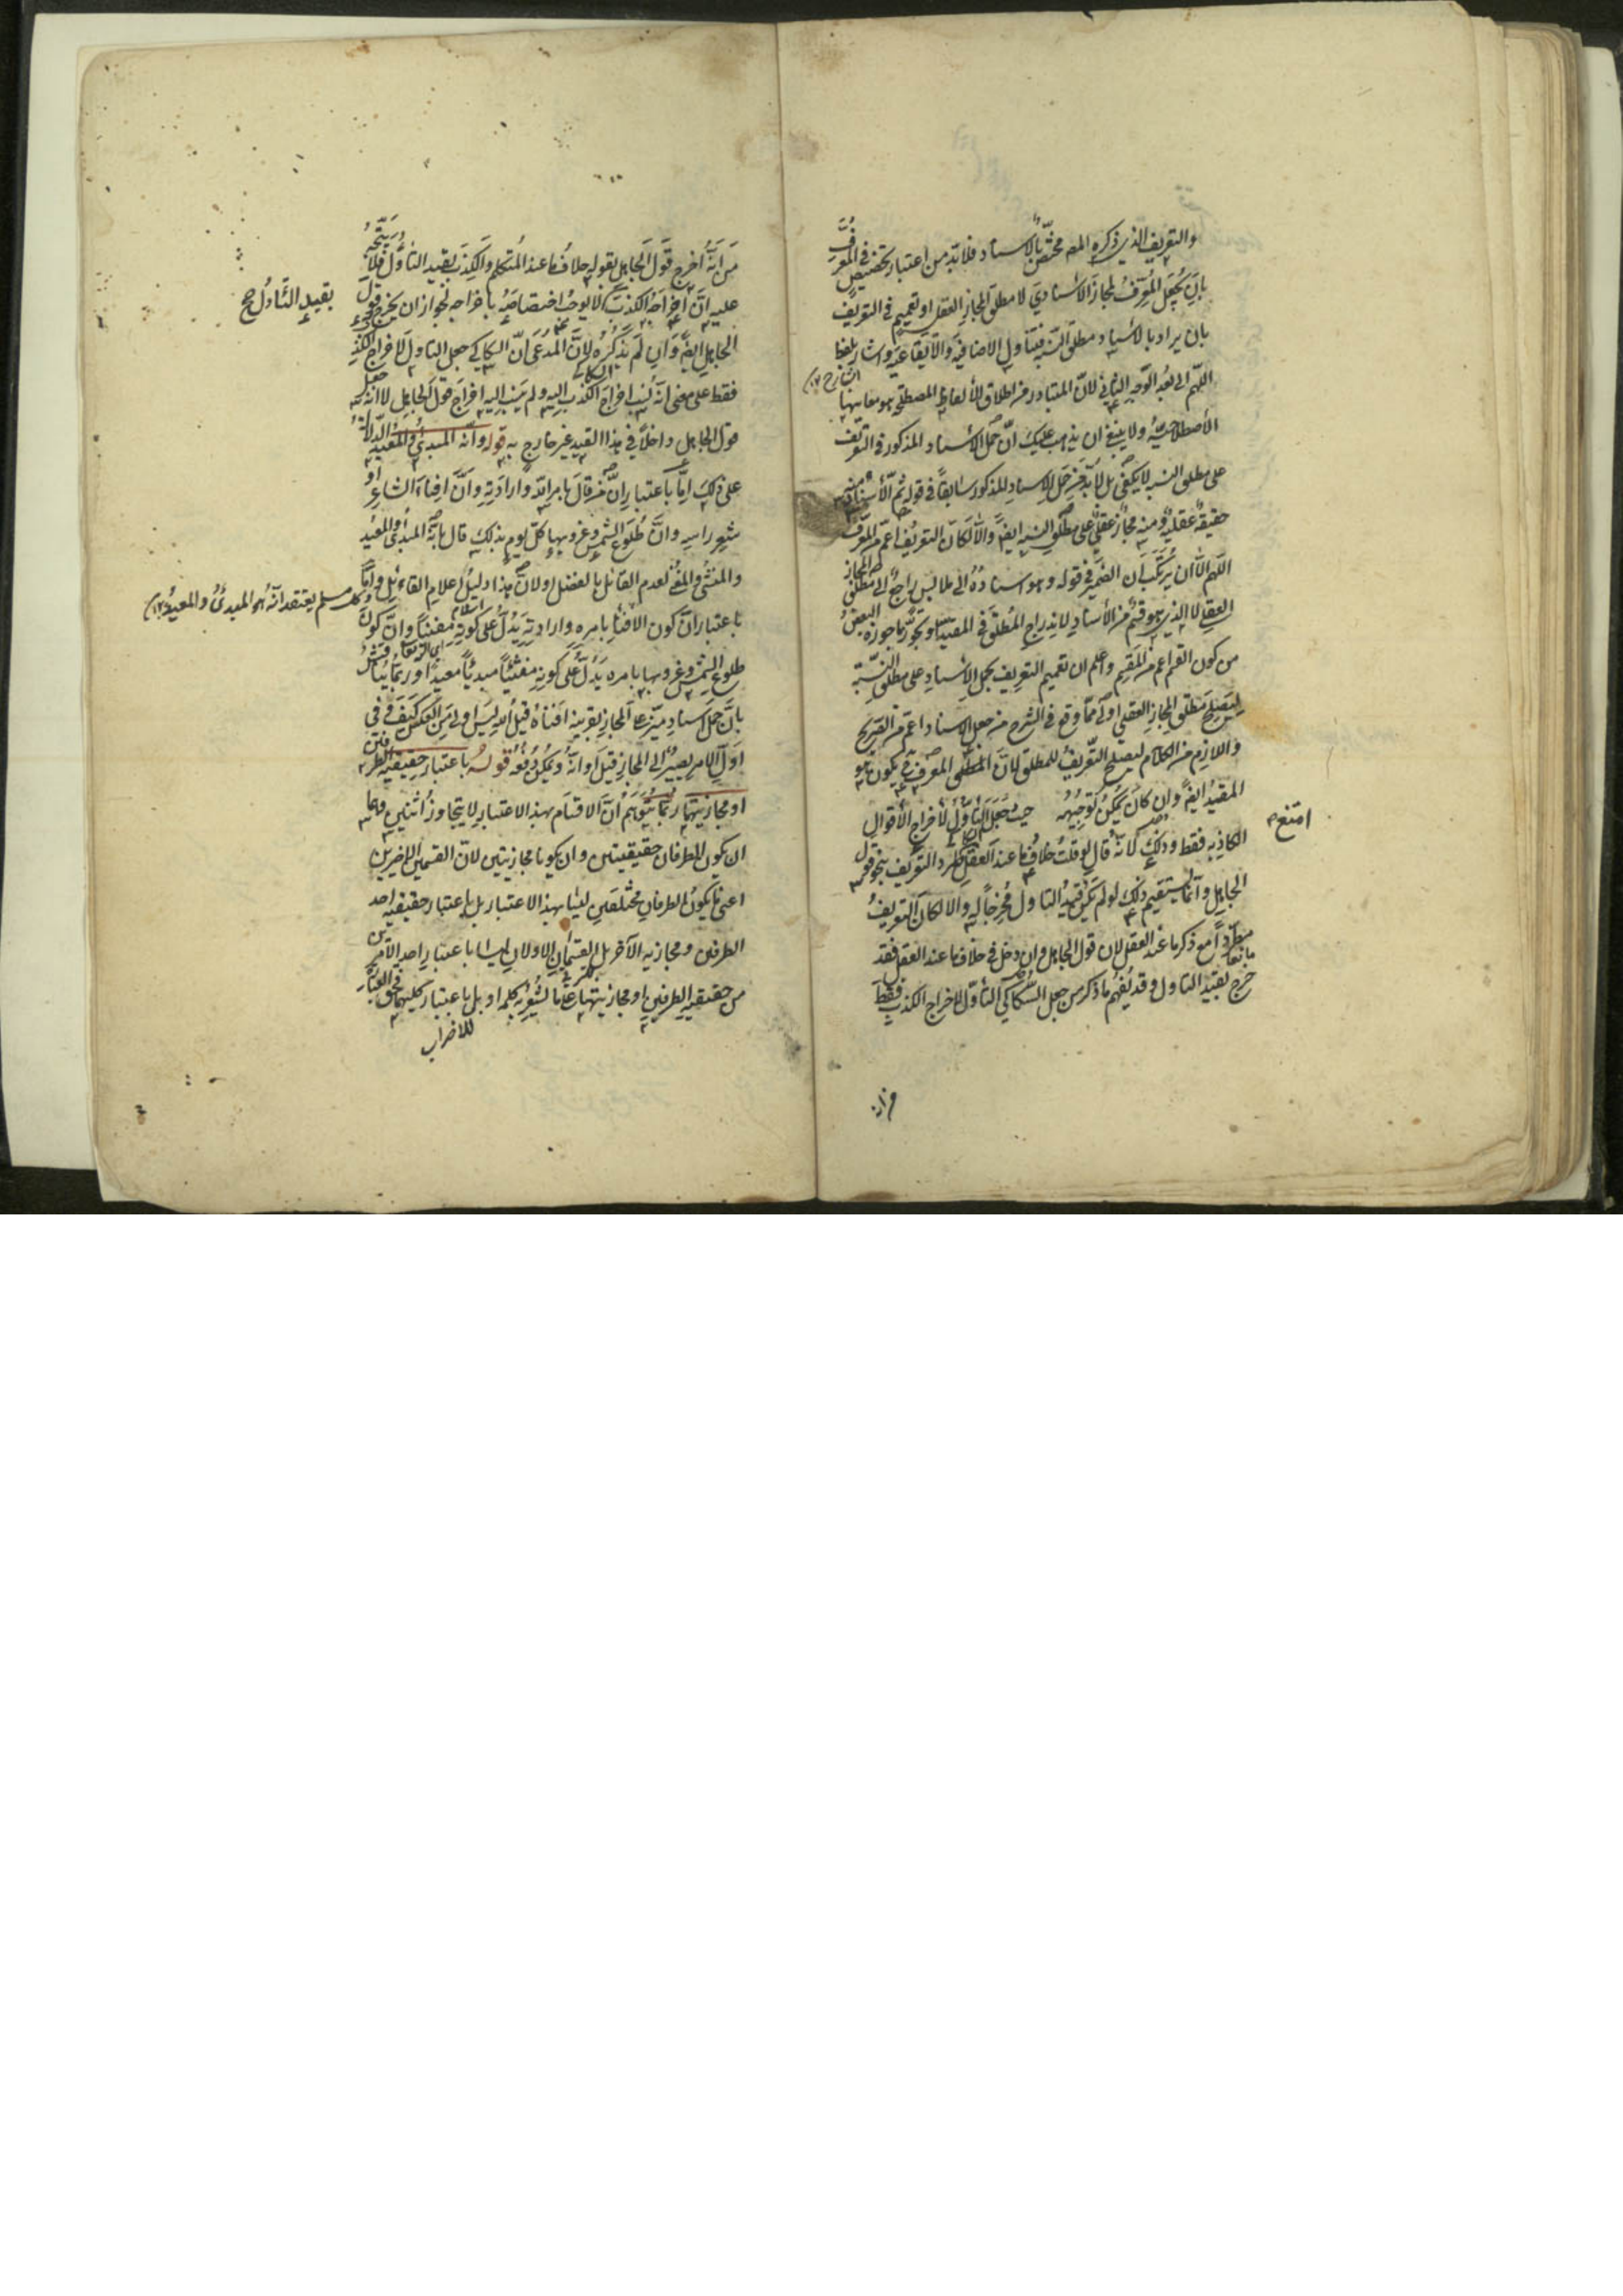 والتعريف الذى ذكره المصـ مختصّ بالاسناد فلابدّ من اعتبار تخصيص فى المعرَّف
بان يجعل المعرّفُ المجازَ الاسنادىَ لا مطلقَ المجازِ العقلى او تعميم فى التعريف
بان يراد بالاسناد مطلق النسبة فيتناول الاضافية والايقاعية واشار بلفظ
اللّهم الى بُعد الوجه الثانى لانّ المتبادر من اطلاق الألفاظ المصطلحة هو معانيها
الشارح
الأصطلاحيةُ ولا ينبغى ان يذهب عليك انّ حمل الاسناد المذكور فى التعريف
على مطلق النسبة لا يكفى بل لابدّ من حمل الاسناد المذكور سابقاً فى قوله ثمّ الأسناد منه
حقيقةٌ عقليةٌ ومنه مجازٌ عقلىٌ على مطلق النسبة ايضاً والّا لكان التعريف اعمّ من المعرّف
اللّهم الّا ان يرتكب ان الضمير فى قوله وهو اسنادُهُ الى ملابس راجعٌ الى مطلق المجاز
العقلى لا الذى هو قسمٌ من الأسناد لاندراج المطلق فى المقيد او تجوّز ما جوزه البعض
من كون القسم اعم من المقسم واعلم ان تعميم التعريف بحمل الاسناد على مطلق النسبة
ليصلح مطلق المجاز العقلى اولى ممّا وقع فى الشرح من جعل الاسناد اعم من الصريح
واللازم من الكلام ليصلح التعريفُ للمطلق لانّ المطلق المعرف يكون هو
المقيدُ ايضاً وان كان يُمكنُ توجيهُه حيث جعل التأوّل لأخراج الأقوال
امتنع
الكاذبة فقط وذلك لانّه قال لو قلتُ خلافُ ما عند العقل لم يطرد التعريف بنحو قول
الجاهل وانّما يستقيم ذلك لو لم يكن قيدُ التاول مُخرجاً له والا لكان التعريفُ
مطرّداً مانعاً مع ذكر ما عند العقل لان قول الجاهل وان دخل فى خلاف ما عند العقل فقد
خرج بقيد التاول وقد يُفهم ما ذكر من جعل السّكاكى التأوّل لاخراج الكذب فقط
من انّه
من انّهُ اخرج قول الجاهل بقوله خلافُ ما عند المُتكلم والكذبَ بقيد التأوّل فلا يتّجهُ
عليه انّ اخراجهُ الكذبَ لا يوجبُ اختصاصهُ باخراجه لجواز ان يخرج قول
بقيدِ التّاولُ صح
الجاهل ايضاً وان لم يذكُره لانّ المدّعى انّ السكاكى جعل التاول لاخراج الكذب
فقط على معنى انّه نسب اخراج الكذب اليه ولم ينسب اليه اخراج قول الجاهل لا انّه جعل
قول الجاهل داخلاً فى هذا القيد غير خارج به قوله وانّه المبدئ والمعيد الدلالةُ
على ذلك امّا باعتبار انّ من قال بامر الله وارادته وانّ افناء الشاعر او
شعر راسه وانّ طلوع الشمس وغروبها كلّ يوم بذلك قال بانّه المبدئ والمعيد
والمنشئ والمفنى لعدم القائل بالفصل او لانّ هذا دليل اسلام القائل وامّا
كل مسلم يعتقد انّه هو المبدئُ والمعيدُ
باعتبار انّ كون الافناء بامره وارادته يدلّ على كونه مفنياً وانّ كون
طلوع الشمس وغروبها بامره يدلّ على كونه منشئاً مبدئاً معيداً وربّما يُناقش
بانّ حمل اسناد ميّز على المجاز بقرينة افناهُ قيلُ الله ليس اولى من العكس كيف وفى
اوّل الامر يصيرُ الى المجاز قبل اوانه ويُمكن دفعُه قولُه باعتبار حقيقية الطرفين
او مجازيتهما ربّما يُتوهّم انّ الاقسام بهذا الاعتبار لا يتجاوز اثنين وهما
ان يكون الطرفان حقيقيتين وان يكونا مجازيتين لانّ القسمين الاخيرين
اعنى ما يكونُ الطرفان مختلفين ليسا بهذا الاعتبار بل باعتبار حقيقية احد
الطرفين ومجازية الآخر بل القسمان الاولان ليسا باعتبار احد الامرين
من حقيقية الطرفين او مجازيتهما على ما يشعر به كلمة او بل باعتبار كليهما فحق العبارة
للاضراب